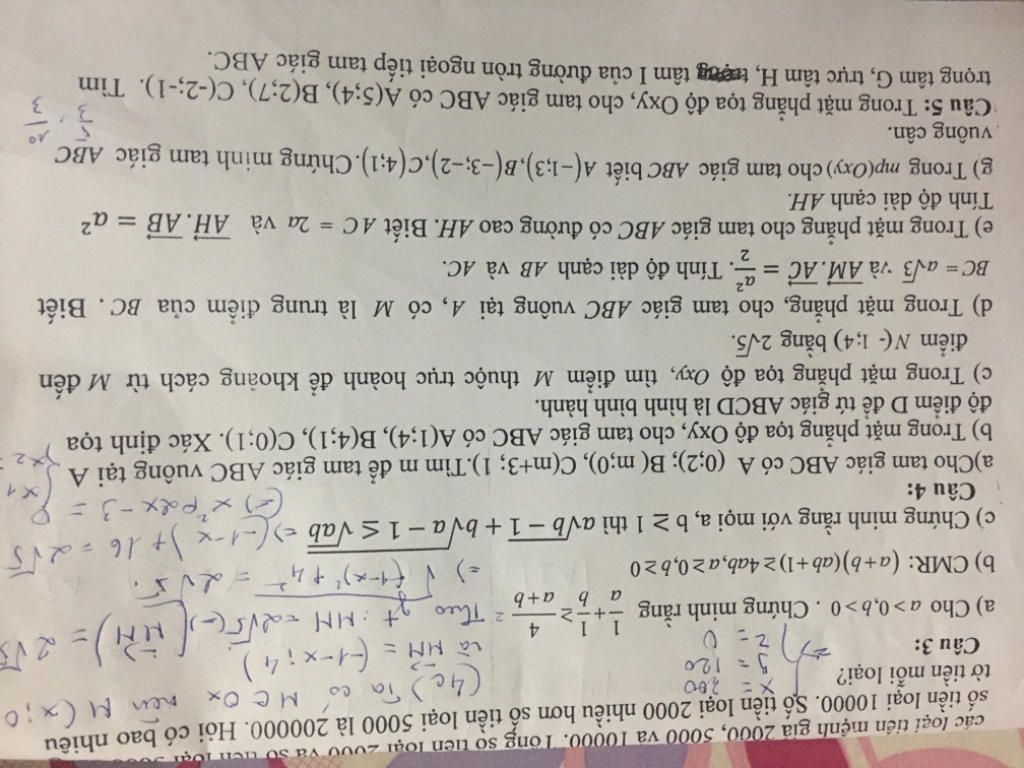 các loại tiền mệnh giá 2000, 5000 và 10000. Tổng số tiền loại 2000 và số tiền loại 5000
số tiền loại 10000. Số tiền loại 2000 nhiều hơn số tiền loại 5000 là 200000. Hỏi có bao nhiêu
tờ tiền mỗi loại?
x = 200
y = 120
z = 0
(4c) Ta có M ∈ Ox nên M(x; 0
và MM = (-1-x; 4)
Câu 3:
a) Cho a > 0, b > 0 . Chứng minh rằng 1/a + 1/b ≥ 4/(a+b)
Theo gt : MN = 2√5 (-)
) = 2√5
=> √(-1-x)² + 4² = 2√5.
b) CMR: (a+b)(ab+1) ≥ 4ab, a ≥ 0, b ≥ 0
c) Chứng minh rằng với mọi a, b ≥ 1 thì a√b−1 + b√a−1 ≤ √ab
=> (-1-x) + 16 = 2√5
Câu 4:
a)Cho tam giác ABC có A (0;2); B( m;0), C(m+3; 1).Tìm m để tam giác ABC vuông tại A
b) Trong mặt phẳng tọa độ Oxy, cho tam giác ABC có A(1;4), B(4;1), C(0;1). Xác định tọa
độ điểm D để tứ giác ABCD là hình bình hành.
c) Trong mặt phẳng tọa độ Oxy, tìm điểm M thuộc trục hoành để khoảng cách từ M đến
điểm N(- 1;4) bằng 2√5.
d) Trong mặt phẳng, cho tam giác ABC vuông tại A, có M là trung điểm của BC . Biết
BC = a√3 và AM. AC = a²/2. Tính độ dài cạnh AB và AC.
e) Trong mặt phẳng cho tam giác ABC có đường cao AH. Biết AC = 2a và AH. AB = a²
Tính độ dài cạnh AH.
g) Trong mp(Oxy) cho tam giác ABC biết A(−1;3), B(−3;−2), C(4;1).Chứng minh tam giác ABC
vuông cân.
5/3, 10/3
Câu 5: Trong mặt phẳng tọa độ Oxy, cho tam giác ABC có A(5;4), B(2;7), C(-2;-1). Tìm
trọng tâm G, trực tâm H, tâm I của đường tròn ngoại tiếp tam giác ABC.